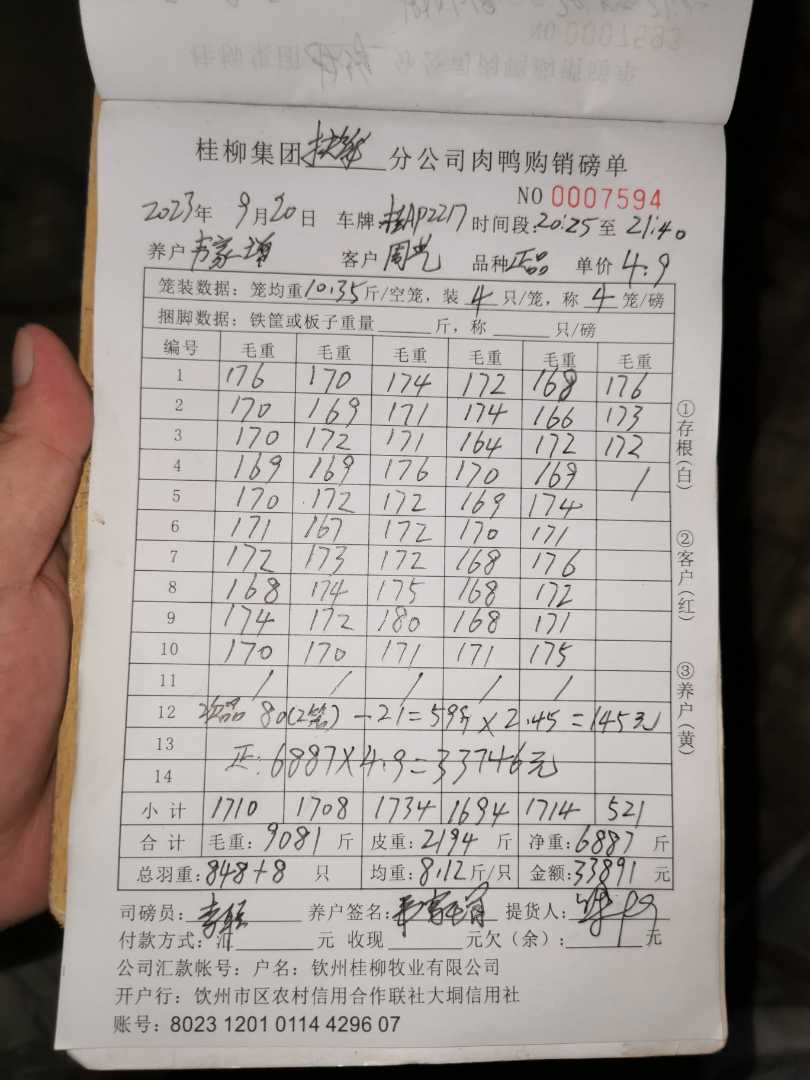 桂柳集团 分公司肉鸭购销磅单
NO 0007594
2023年 9月20日 车牌:桂AP2217 时间段:20:25至 21:40
养户 韦家增 客户 周光 品种 正品 单价 4.9
笼装数据：笼均重10.35斤/空笼，装 4 只/笼，称 4 笼/磅
捆脚数据：铁筐或板子重量 斤，称 只/磅
编号 毛重 毛重 毛重 毛重 毛重 毛重
1 176 170 174 172 168 176
2 170 169 171 174 166 173
3 170 172 171 164 172 172
4 169 169 176 170 169 /
5 170 172 172 169 174
6 171 167 172 170 171
7 172 173 172 168 176
8 168 174 175 168 172
9 174 172 180 168 171
10 170 170 171 171 175
11 / / / / /
12 80(2笼) -21=59斤×2.45=145元
13 正:6887×4.9=33746元
14
小计 1710 1708 1734 1694 1714 521
合计 毛重:9081 斤 皮重:2194 斤 净重:6887 斤
总羽重:848+8 只 均重:8.12斤/只 金额:33891 元
司磅员: 养户签名: 提货人:
付款方式:汇 元 收现 元欠（余）: 元
公司汇款帐号：户名：钦州桂柳牧业有限公司
开户行：饮州市区农村信用合作联社大垌信用社
账号：8023 1201 0114 4296 07
①存根(白)
②客户(红)
③养户(黄)